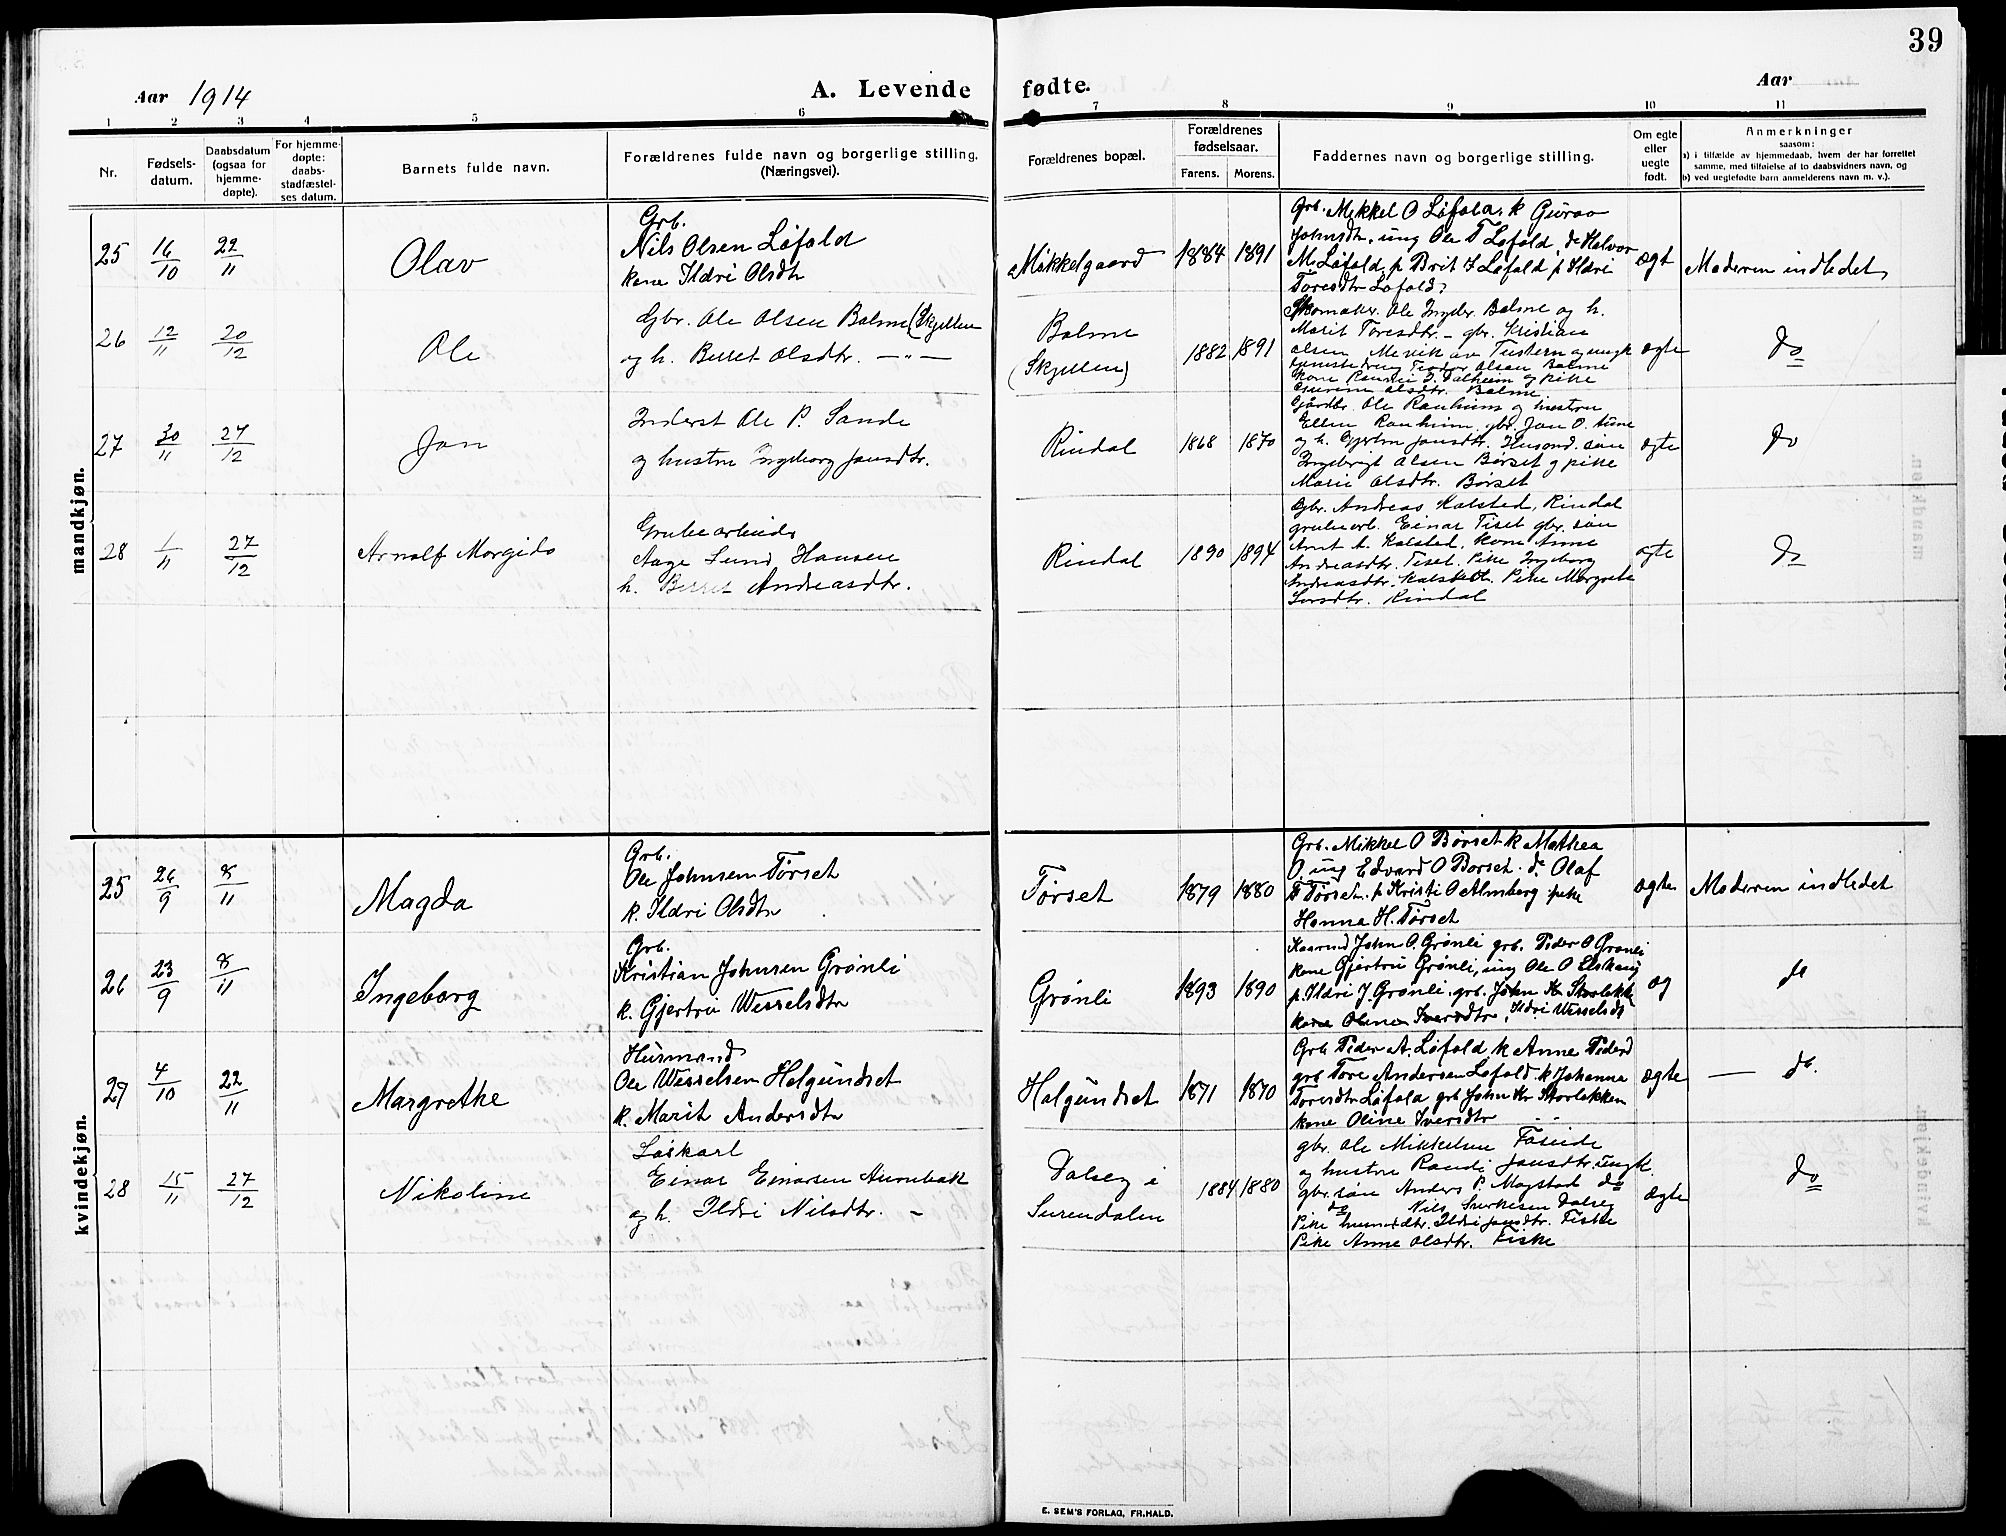 39
Aar 1914
A. Levende fødte.
Aar
1 2 3 4 5 6 7 8 9 10 11
Nr.
Fødsels-
datum.
Daabsdatum
(ogsaa for
hjemme-
døpte).
For hjemme-
døpte:
daabs-
stadfæstel-
ses datum.
Barnets fulde navn.
Forældrenes fulde navn og borgerlige stilling.
(Næringsvei).
Forældrenes bopæl.
Forældrenes
fødselsaar.
Farens. Morens.
Faddernes navn og borgerlige stilling.
Om egte
eller
uegte
født.
Anmerkninger
saasom:
a) i tilfælde av hjemmedaab, hvem der har forrettet
samme, med tilføielse af to daabsvidners navn, og
b) ved uegtefødte barn anmelderens navn m. v.).
mandkjøn.
25 16/10 22/11 Olav
Grb.
Nils Olsen Løfald
kone Ildri Olsdtr
Mikkelgaard 1884 1891
Grb. Mikkel O Løfald, k Guroo
Johnsdtr, ung Ole T Løfald, do Halvor
M Løfald, p Brit I Løfald p Ildri
Toresdtr Løfald
ægt Moderen indledet
26 12/11 20/12 Ole
Gbr. Ole Olsen Bolme (Skjellen
og h. Berret Olsdtr. — " —
Bolme
(Skjellen)
1882 1891
Skomaker. Ole Ingbr. Bolme og h.
Marit Toresdtr. – gbr. Kristian
Olsen Mevik av Tustern og ungk
Olsen Bolme
kone D. Dalheim og pike
Olsdtr. Bolme
ægte do
27 30/11 27/12 Jon
Inderst Ole P. Sande
og hustru Ingeborg Jonsdtr.
Rindal 1868 1870
Gjårdbr. Ole Ranheim og hustru
Ellen Ranheim, gbr. Jon O.
og h. Jonsdtr. Husmd. søn
Ingebrigt Olsen Børset og pike
Marie Olsdtr. Børset
ægte do
28 1/11 27/12 Arnolf Morgido
Grubearbeider
Aage Lund Hansen
h. Berret Andreasdtr.
Rindal 1890 1894
Gbr. Andreas Kalsted, Rindal
grubearb. Einar Tiset gbr. søn
Arnt A. Kalsted. Kone Anne
Andreasdtr. Tiset. Pike Ingeborg
Andreasdtr. Kalstedt. Pike Margrete
Rindal
ægte do
kvindekjøn.
25 26/9 8/11 Magda
Grb.
Ole Johnsen Tørset
k. Ildri Olsdtr
Tørset 1879 1880
Grb. Mikkel O Børset k Mathea
O. ung Edvard O Børset. do Olaf
Tørset. p Kristi O Almberg pike
Hanna H. Tørset
ægte Moderen indledet
26 23/9 8/11 Ingeborg
Grb.
Kristian Johnsen Grønli
k. Gjertru Wesselsdtr
Grønli 1893 1890
Kaarmd John O. Grønli grb. Peder O Grønli
kone Gjertru Grønli, ung Ole O
p. Ildri J. Grønli. grb. John Kr Storløkken
kone Oline Iversdtr, Ildri Wesselsdtr
æg do
27 4/10 22/11 Margrethe
Husmand
Ole Wesselsen Helgundset
k. Marit Andersdtr
Helgundset 1871 1870
Grb Peder A. Løfald k Anne Pedersd
grb Tore Andersen Løfald k Johanna
Toresdtr Løfald grb John Kr Storløkken
kone Oline Iversdtr
ægte — do.
28 15/11 27/12 Nikoline
Løskarl
Einar Einarsen Aunebak
og h. Ildri Nilsdtr. –
Dalsey i
Surendalen
1884 1880
gbr. Ole Mikkelsen
og hustru Randi Jonsdtr. ungk.
gbr. søn Anders P. Mogstad do
do Nils Dalsey
Pike Ildri Jonsdtr. Fiske
Pike Anne Olsdtr. Fiske
ægte do
E. SEM'S FORLAG, FR.HALD.